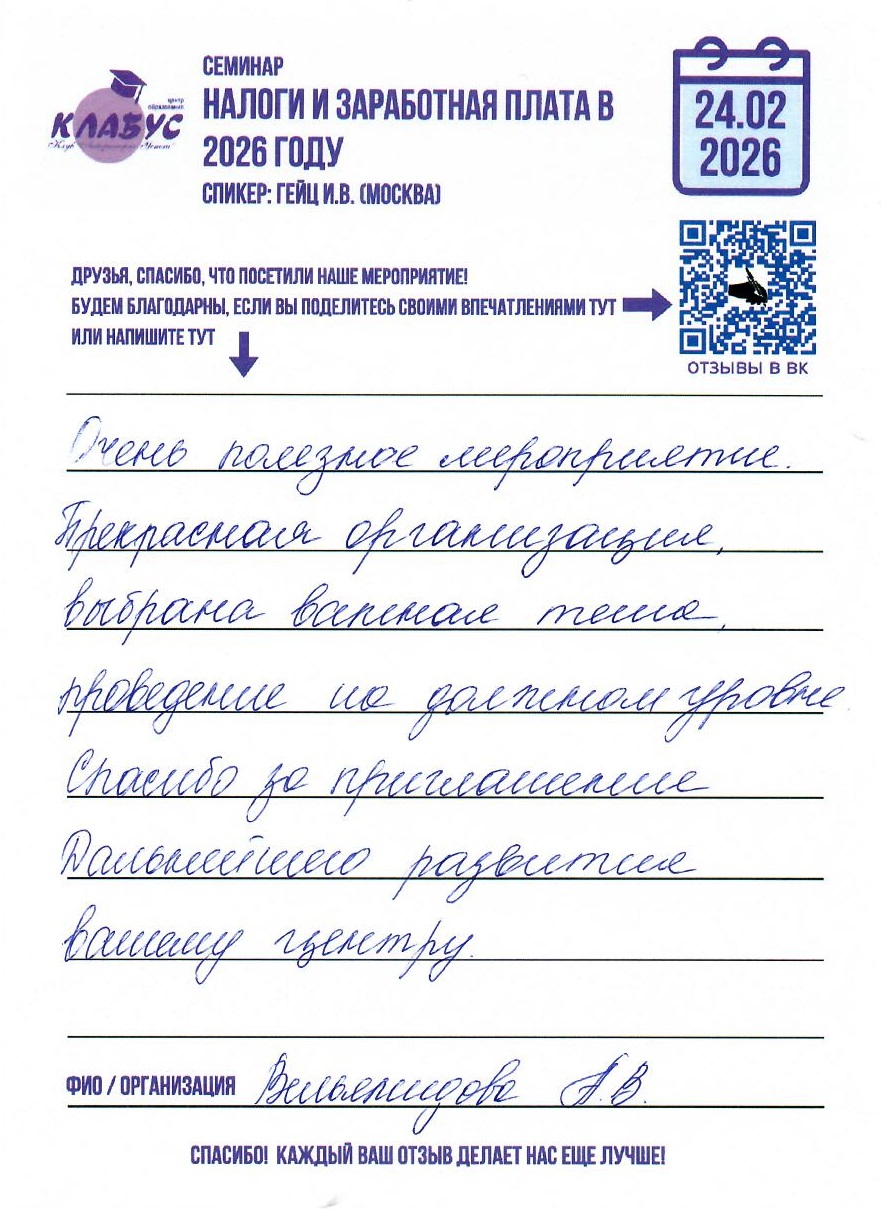 СЕМИНАР
НАЛОГИ И ЗАРАБОТНАЯ ПЛАТА В
2026 ГОДУ
СПИКЕР: ГЕЙЦ И.В. (МОСКВА)
центр
образования
КЛАБУС
24.02
2026
ДРУЗЬЯ, СПАСИБО, ЧТО ПОСЕТИЛИ НАШЕ МЕРОПРИЯТИЕ!
БУДЕМ БЛАГОДАРНЫ, ЕСЛИ ВЫ ПОДЕЛИТЕСЬ СВОИМИ ВПЕЧАТЛЕНИЯМИ ТУТ
ИЛИ НАПИШИТЕ ТУТ
ОТЗЫВЫ В ВК
Очень полезное мероприятие.
Прекрасная организация,
выбрана важная тема,
проведение на должном уровне
Спасибо за приглашение
Дальнейшего развития
вашему центру.
ФИО / ОРГАНИЗАЦИЯ Вельямидова А.В.
СПАСИБО! КАЖДЫЙ ВАШ ОТЗЫВ ДЕЛАЕТ НАС ЕЩЕ ЛУЧШЕ!